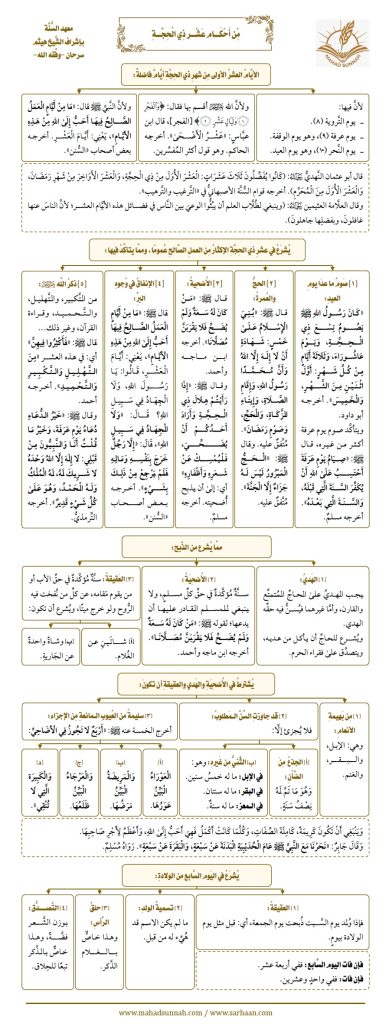 معهد السُّنَّة
بإشراف الشَّيخ هيثم
سرحان -وفقه الله-
مِّن أَحكَـام عَشْـر ذي الحَجَّـة
MAHAD SUNNAH
الأيَّامُ العَشْر الأولى من شَهر ذي الحجَّة أيَّامٌ فاضلةٌ:
لأنَّ فيها:
ـ يوم التَّروية (٨).
ـ يوم عرفة (٩)، وهو يوم الوقفة.
ـ يوم النَّحر (١٠)، وهو يوم العيد.
ولأنَّ الله ﷻ أقسم بها فقال: ﴿وَالْفَجْرِ
۝ وَلَيَالٍ عَشْرٍ ۝﴾ [الفجر]، قال ابن
عبَّاس: «عَشْـرُ الأَضْحَـىٰ». أخرجه
الحاكم. وهو قول أكثر المُفَسِّرين.
ولأنَّ النَّبيَّ ﷺ قال: «مَا مِنْ أَيَّامٍ العَمَلُ
الصَّالِحُ فِيهَا أَحَبُّ إِلَى اللهِ مِنْ هَذِهِ
الأَيَّامِ»، يَعْنِي: أَيَّامَ العَشْرِ. أخرجه
بعض أصحاب «السُّنن».
قال أبو عثمان النَّهديُّ: (كَانُوا يُفَضِّلُونَ ثَلَاثَ عَشَرَاتٍ: العَشْرَ الأُوَلَ مِنْ ذِي الحِجَّةِ، وَالعَشْرَ الأَوَاخِرَ مِنْ شَهْرِ رَمَضَانَ،
وَالعَشْرَ الأُوَلَ مِنَ المُحَرَّمِ). أخرجه قوام السُّنة الأصبهانيُّ في «التَّرغيب والتَّرهيب».
وقال العلَّامة العثيمين: (وينبغي لطلَّاب العلم أن يبثُّوا الوعيَ بين النَّاس في فضائل هذه الأيَّام العشر؛ لأنَّ الناسَ عنها
غافلونَ، وبفضلِها جاهلونَ).
يُشرَعُ في عشر ذي الحجَّة الإكثارُ من العمل الصَّالح عُمومًا، وممَّا يتأكَّدُ فيها:
[١] صَومُ ما عدا يومِ
العيد:
«كَانَ رَسُولُ اللهِ ﷺ
يَصُـومُ تِسْـعَ ذِي
الحِجَّـةِ، وَيَـوْمَ
عَاشُورَاءَ، وَثَلَاثَةَ أَيَّامٍ
مِنْ كُلِّ شَهْرٍ: أَوَّلَ
اثْنَيْنِ مِنَ الشَّهْرِ،
وَالخَمِيسَ». أخرجه
أبو داود.
ويتأكَّد صوم يوم عرفة
أكثر من غيره، قال
ﷺ: «صِيَامُ يَوْمِ عَرَفَةَ
أَحْتَسِبُ عَلَى اللهِ أَنْ
يُكَفِّرَ السَّنَةَ الَّتِي قَبْلَهُ،
وَالسَّنَةَ الَّتِي بَعْدَهُ».
أخرجه مسلم.
[٢] الحجُّ
والعُمرةُ:
قال ﷺ: «بُنِيَ
الإِسْلَامُ عَلَىٰ
خَمْسٍ: شَهَادَةِ
أَنْ لَا إِلَهَ إِلَّا اللهُ
وَأَنَّ مُحَمَّدًا
رَسُولُ اللهِ، وَإِقَامِ
الصَّلَاةِ، وَإِيتَاءِ
الزَّكَاةِ، وَالحَجِّ،
وَصَوْمِ رَمَضَانَ».
متَّفق عليه. وقال
ﷺ: «الحَجُّ
المَبْرُورُ لَيْسَ لَهُ
جَزَاءٌ إِلَّا الجَنَّةُ».
متَّفق عليه.
[٣] الأضحية:
قال ﷺ: «مَنْ
كَانَ لَهُ سَعَةٌ وَلَمْ
يُضَحِّ فَلَا يَقْرَبَنَّ
مُصَلَّانَا». أخرجه
ابـن ماجـه
وأحمد.
وقال ﷺ: «إِذَا
رَأَيْتُمْ هِلَالَ ذِي
الحِجَّةِ وَأَرَادَ
أَحَدُكُمْ أَنْ
يُضَحِّـيَ،
فَلْيُمْسِكْ عَنْ
شَعرِهِ وَأَظْفَارِهِ»
أي: إلى أن يذبح
أضحيته. أخرجه
مسلم.
[٤] الإنفاق في وجوه
البرِّ:
قال ﷺ: «مَا مِنْ أَيَّامٍ
العَمَلُ الصَّالِحُ فِيهَا
أَحَبُّ إِلَى اللهِ مِنْ هَذِهِ
الأَيَّامِ»، يَعْنِي: أَيَّامَ
العَشْرِ، قَالُوا: يَا
رَسُولَ اللهِ، وَلَا
الجِهَادُ فِي سَبِيلِ
اللهِ؟ قَالَ: «وَلَا
الجِهَادُ فِي سَبِيلِ
اللهِ، إِلَّا رَجُلٌ
خَرَجَ بِنَفْسِهِ وَمَالِهِ
فَلَمْ يَرْجِعْ مِنْ ذَلِكَ
بِشَيْءٍ». أخرجـه
بعـض أصحـاب
«السُّنن».
[٥] ذكرُ الله ﷻ:
من التَّكبير، والتَّهليل،
والتَّحميـد، وقـراءة
القرآن، وغير ذلك...
قال ﷺ: «فَأَكْثِرُوا فِيهِنَّ»
أي: في هذه العشر «مِنَ
التَّهْلِيلِ وَالتَّكْبِيرِ
وَالتَّحْمِيدِ». أخرجه
أحمد.
وقال ﷺ: «خَيْرُ الدُّعَاءِ
دُعَاءُ يَوْمِ عَرَفَةَ، وَخَيْرُ مَا
قُلْتُ أَنَا وَالنَّبِيُّونَ مِنْ
قَبْلِي: لَا إِلَهَ إِلَّا اللهُ وَحْدَهُ
لَا شَرِيكَ لَهُ، لَهُ المُلْكُ
وَلَهُ الحَمْدُ، وَهُوَ عَلَىٰ
كُلِّ شَيْءٍ قَدِيرٌ». أخرجه
التِّرمذيُّ.
ممَّا يُشرع من الذَّبح:
(١) الهَديُ:
يجب الهديُ على الحاجِّ المُتمتِّع
والقارن، وأمَّا غيرهما فيُسنُّ في حقِّه
الهديُ.
ويُشرع للحاجِّ أن يأكل من هديه،
ويتصدَّق على فقراء الحرم.
(٢) الأضحيةُ:
سنَّةٌ مُؤكَّدةٌ في حقِّ كُلِّ مسلمٍ، ولا
ينبغي للمسلم القادر عليها أن
يدعها؛ لقوله ﷺ: «مَنْ كَانَ لَهُ سَعَةٌ
وَلَمْ يُضَحِّ فَلَا يَقْرَبَنَّ مُصَلَّانَا».
أخرجه ابن ماجه وأحمد.
(٣) العقيقةُ: سنَّةٌ مُؤكَّدةٌ في حقِّ الأب أو
من يقوم مقامَه، عن كلِّ من نُفخت فيه
الرُّوح ولو خرج ميتًا، ويُشرع أن تكون:
(أ) شـاتَـيـن عـن
الغُلام.
(ب) وشاةً واحدةً
عن الجَارية.
يُشترَطُ في الأضحيةِ والهديِ والعقيقةِ أن تكون:
(١) من بهيمة
الأنعام:
وهي: الإبل،
والبــقــر،
والغنم.
(٢) قد جاوزت السِّنَّ المطلوبَ:
فلا يُجزئ إلَّا:
(أ) الجَذَعُ من
الضَّأن:
وهُوَ مَا تَمَّ لَهُ
نِصْفُ سَنَةٍ.
(ب) الثَّنيُّ من غيره: وهو:
في الإبل: ما له خمسُ سنين.
في البقر: ما له سنتان.
في المعز: ما له سنةٌ.
(٣) سليمةً من العُيوب المانعة من الإجزاء:
أخرج الخمسة عنه ﷺ: «أَرْبَعٌ لَا تَجُوزُ فِي الأَضَاحِيِّ:
(أ)
العَوْرَاءُ
البَيِّنُ
عَوَرُهَا.
(ب)
وَالمَرِيضَةُ
البَيِّنُ
مَرَضُهَا.
(ج)
وَالعَرْجَاءُ
البَيِّنُ
ظَلَعُهَا.
(د)
وَالكَبِيرَةُ
الَّتِي لَا
تُنْقِي».
وَيَنْبَغِي أَنْ تَكُونَ كَرِيمَةً، كَامِلَةَ الصِّفَاتِ، وَكُلَّمَا كَانَتْ أَكْمَلَ فَهِيَ أَحَبُّ إِلَى اللهِ، وَأَعْظَمُ لِأَجْرِ صَاحِبِهَا.
وَقَالَ جَابِرٌ: «نَحَرْنَا مَعَ النَّبِيِّ ﷺ عَامَ الحُدَيْبِيَةِ البَدَنَةَ عَنْ سَبْعَةٍ، وَالبَقَرَةَ عَنْ سَبْعَةٍ». رَوَاهُ مُسْلِمٌ.
يُشرعُ في اليوم السَّابع من الولادة:
(١) العقيقةُ:
فإذا وُلد يوم السَّبت ذُبحت يوم الجمعة، أي: قبل مثل يوم
الولادة بيومٍ.
فإن فات اليوم السَّابع: ففي أربعة عشر.
فإن فات: ففي واحدٍ وعشرين.
(٢) تسميةُ الولد:
ما لم يكن الاسم قد
هُيِّء له من قبل.
(٣) حلقُ
الرَّأس:
وهـذا خـاصٌّ
بـالـغـلام
الذَّكر.
(٤) التَّصـدُّق:
بوزن الشَّـعر
فضَّـةً، وهـذا
خاصٌّ بالذَّكر
تبعًا للحِلاق.
www.mahadsunnah.com / www.sarhaan.com